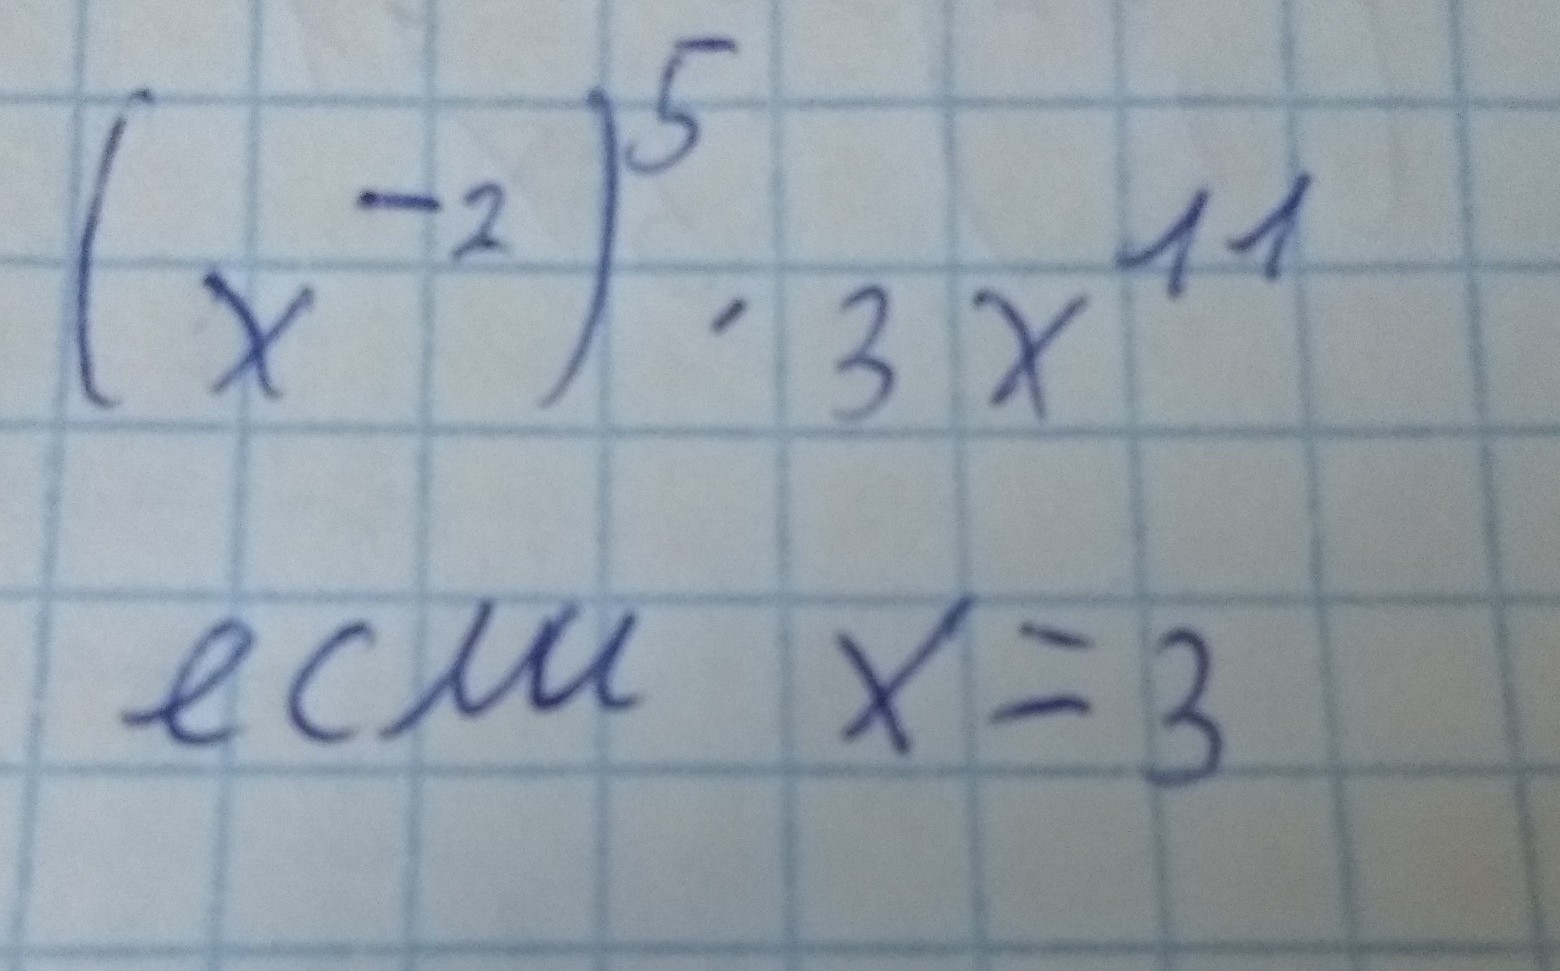 (x⁻²)⁵ · 3x¹¹
если x = 3